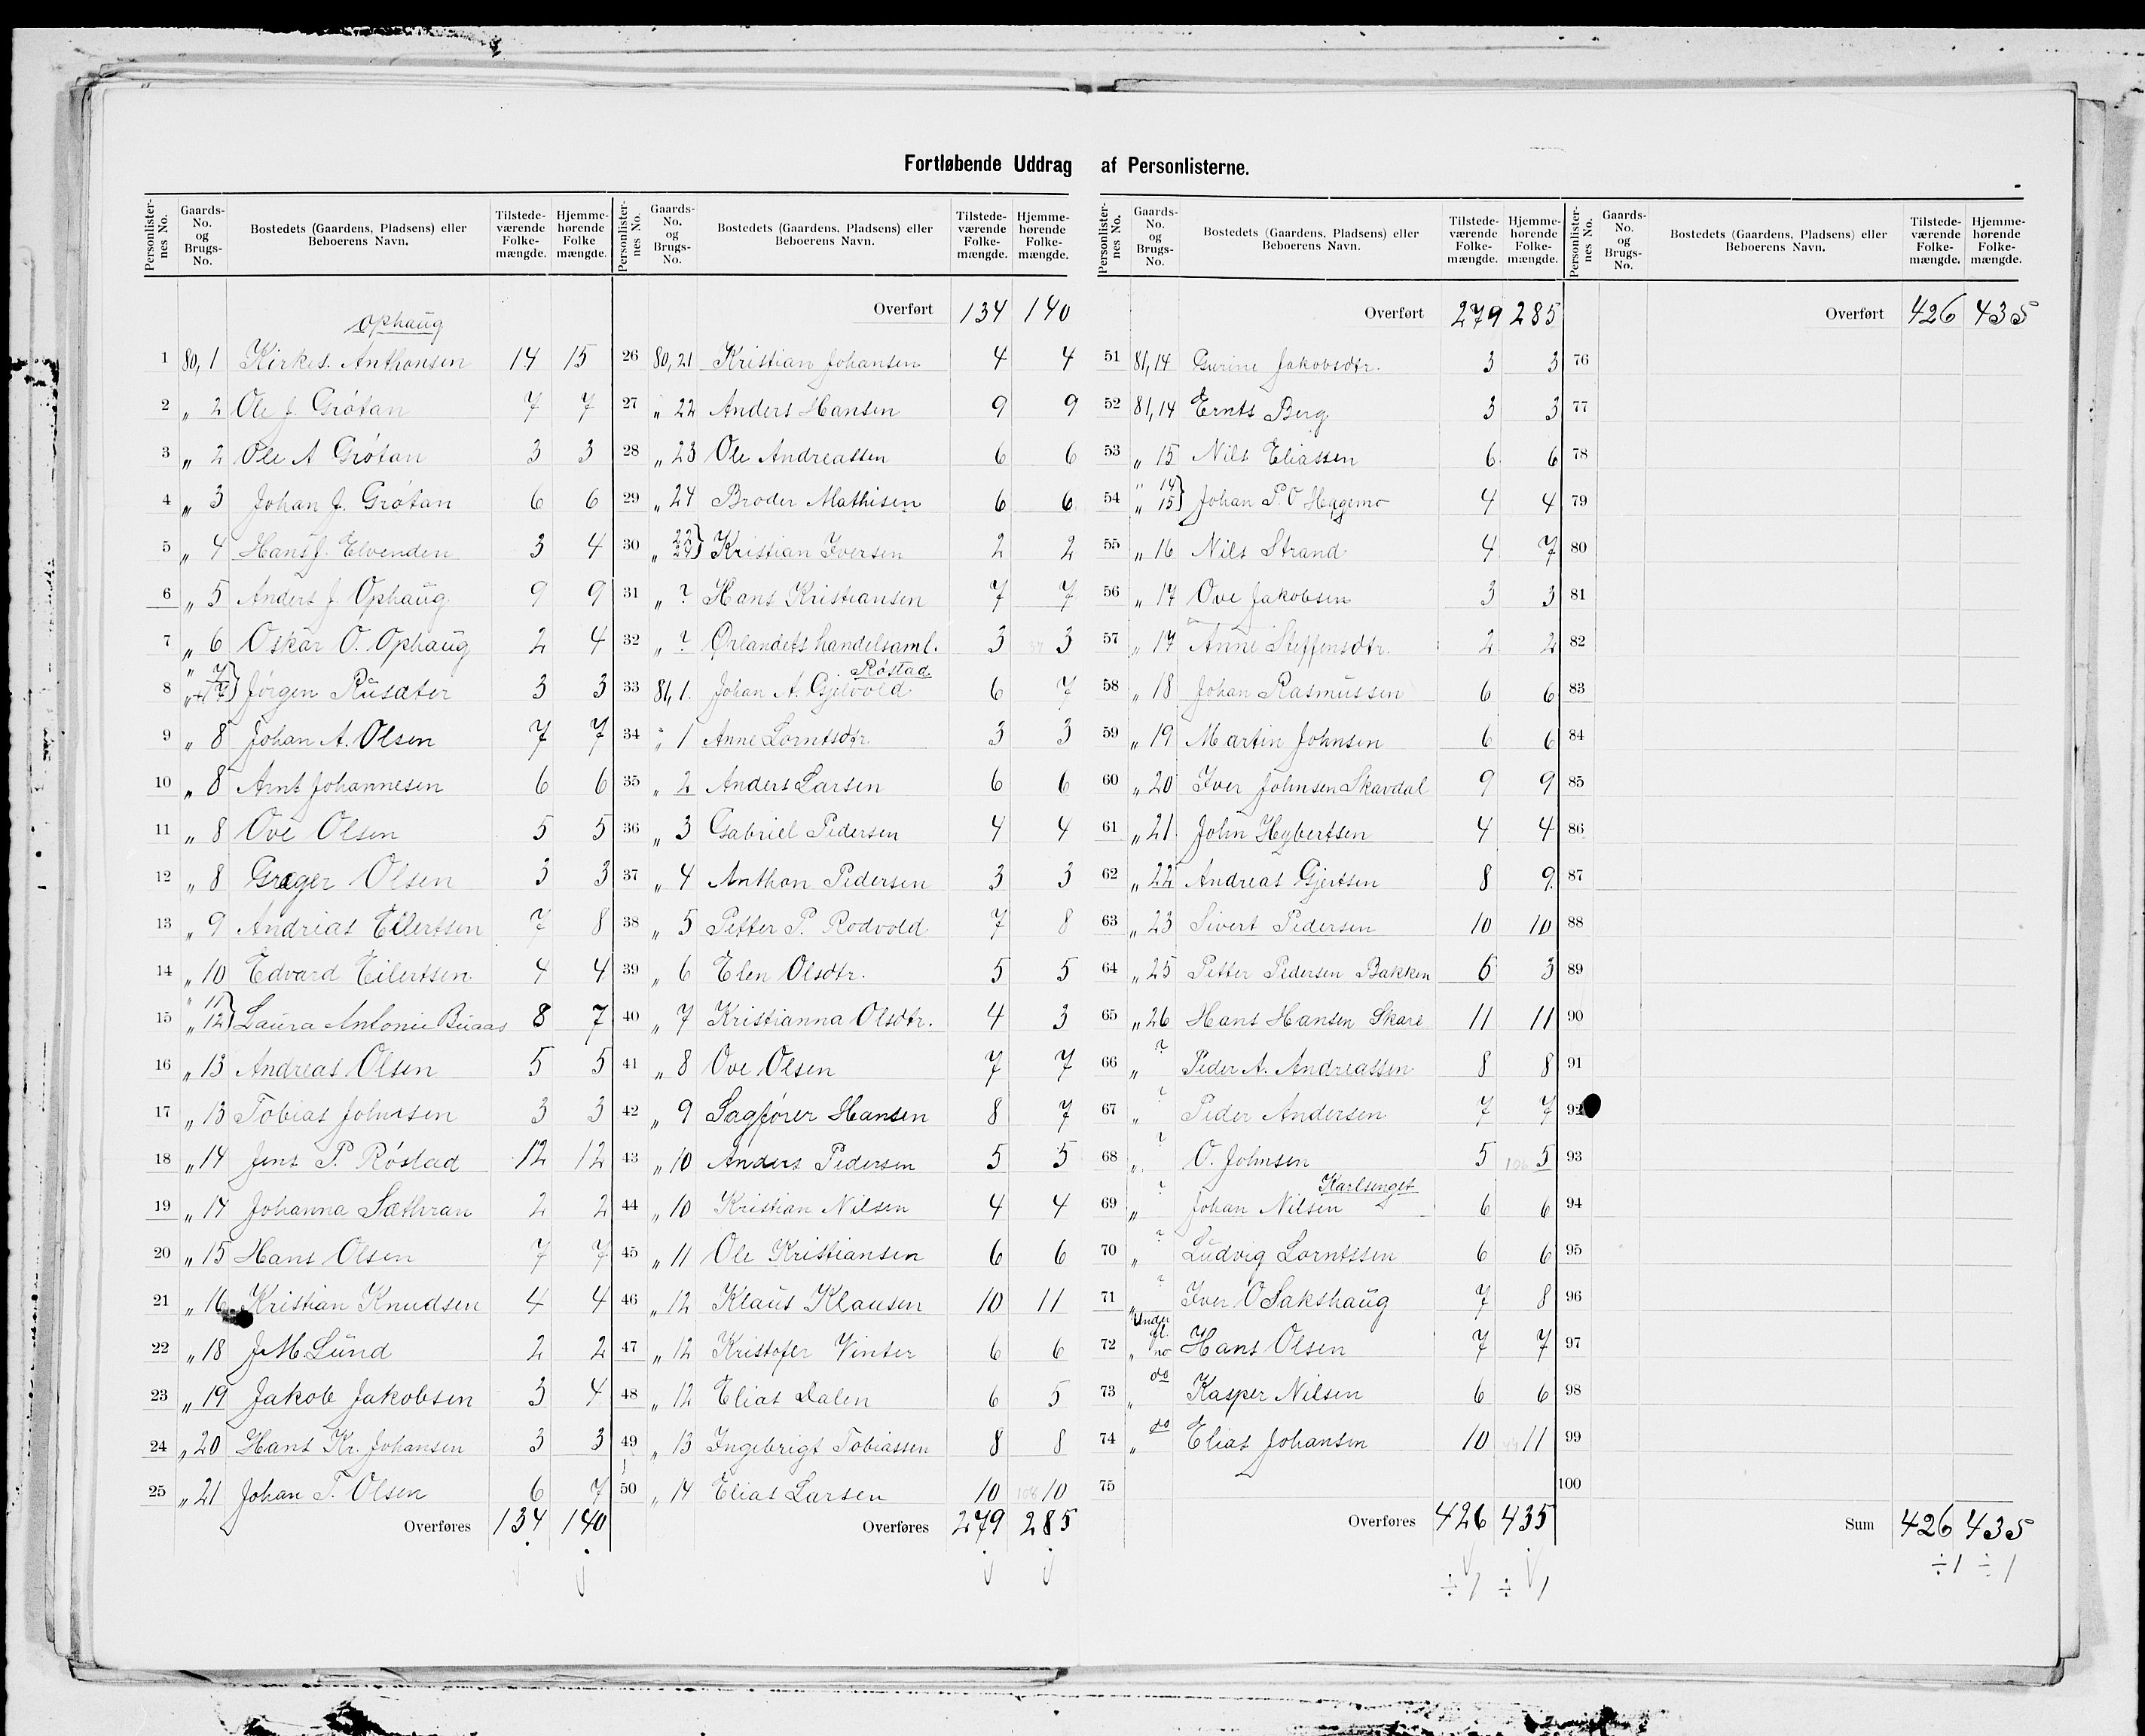 Fortløbende Uddrag af Personlisterne.
Personlisternes No. Gaards-No. og Brugs-No. Bostedets (Gaardens, Pladsens) eller Beboerens Navn. Tilstedeværende Folkemængde. Hjemmehørende Folkemængde.
Ophaug
1 80, 1 Kirkes. Anthonsen 14 15
2 „ 2 Ole J. Grøtan 7 7
3 „ 2 Ole A Grøtan 3 3
4 „ 3 Johan J. Grøtan 6 6
5 „ 4 Hans J. Elvenden 3 4
6 „ 5 Anders J. Ophaug 9 9
7 „ 6 Oskar O. Ophaug 2 4
8 „ 7 Jørgen Rusæter 3 3
9 „ 8 Johan A. Olsen 7 7
10 „ 8 Arnt Johannesen 6 6
11 „ 8 Ove Olsen 5 5
12 „ 8 Græger Olsen 3 3
13 „ 9 Andreas Eilertsen 7 8
14 „ 10 Edvard Eilertsen 4 4
15 „ 11 „ 12} Laura Antonie Buaas 8 7
16 „ 13 Andreas Olsen 5 5
17 „ 13 Tobias Johnsen 3 3
18 „ 14 Jens P. Røstad 12 12
19 „ 14 Johanna Sæthran 2 2
20 „ 15 Hans Olsen 7 7
21 „ 16 Kristian Knudsen 4 4
22 „ 18 J. M. Lund 2 2
23 „ 19 Jakob Jakobsen 3 4
24 „ 20 Hans Kr. Johansen 3 3
25 „ 21 Johan T. Olsen 6 7
Overføres 134 140
Personlisternes No. Gaards-No. og Brugs-No. Bostedets (Gaardens, Pladsens) eller Beboerens Navn. Tilstedeværende Folkemængde. Hjemmehørende Folkemængde.
Overført 134 140
26 80, 21 Kristian Johansen 4 4
27 „ 22 Anders Hansen 9 9
28 „ 23 Ole Andreassen 6 6
29 „ 24 Broder Mathisen 6 6
30 „ 22 24} Kristian Iversen 2 2
31 „ ? Hans Kristiansen 7 7
32 „ ? Ørlandets handelsaml. 3 3
Røstad
33 81, 1. Johan A. Gjelvold 6 7
34 „ 1 Anne Lorntsdtr. 3 3
35 „ 2 Anders Larsen 6 6
36 „ 3 Gabriel Pedersen 4 4
37 „ 4 Anthon Pedersen 3 3
38 „ 5 Petter P. Rodvold 7 8
39 „ 6 Elen Olsdtr. 5 5
40 „ 7 Kristianna Olsdtr. 4 3
41 „ 8 Ove Olsen 7 7
42 „ 9 Sagfører Hansen 8 7
43 „ 10 Anders Pedersen 5 5
44 „ 10 Kristian Nilsen 4 4
45 „ 11 Ole Kristiansen 6 6
46 „ 12 Klaus Klausen 10 11
47 „ 12 Kristofer Vinter 6 6
48 „ 12 Elias Dalen 6 5
49 „ 13 Ingebrigt Tobiassen 8 8
50 „ 14 Elias Larsen 10 10
Overføres 279 285
Personlisternes No. Gaards-No. og Brugs-No. Bostedets (Gaardens, Pladsens) eller Beboerens Navn. Tilstedeværende Folkemængde. Hjemmehørende Folkemængde.
Overført 279 285
51 81, 14 Gurine Jakobsdtr. 3 3
52 81, 14 Ernts Berg 3 3
53 „ 15 Nils Eliassen 6 6
54 „ 14 „ 15} Johan P. O Hegemo 4 4
55 „ 16 Nils Strand 4 7
56 „ 17 Ove Jakobsen 3 3
57 „ 17 Anne Steffensdtr. 2 2
58 „ 18 Johan Rasmussen 6 6
59 „ 19 Martin Johnsen 6 6
60 „ 20 Iver Johnsen Skavdal 9 9
61 „ 21 John Hybertsen 4 4
62 „ 22 Andreas Gjertsen 8 9
63 „ 23 Sivert Pedersen 10 10
64 „ 25 Petter Pedersen Bakken 6 3
65 „ 26 Hans Hansen Skare 11 11
66 „ ? Peder A. Andreassen 8 8
67 „ ? Peder Andersen 7 7
68 „ ? O. Johnsen 5 5
Karlsenget
69 „ ? Johan Nilsen 6 6
70 „ ? Ludvig Lorntssen 6 6
71 „ ? Iver O Sakshaug 7 8
72 „ Under gl. no Hans Olsen 7 7
73 „ do Kasper Nilsen 6 6
74 „ do Elias Johansen 10 11
75
Overføres 426 435
÷ 1 ÷ 1
Personlisternes No. Gaards-No. og Brugs-No. Bostedets (Gaardens, Pladsens) eller Beboerens Navn. Tilstedeværende Folkemængde. Hjemmehørende Folkemængde.
Overført 426 435
76
77
78
79
80
81
82
83
84
85
86
87
88
89
90
91
92
93
94
95
96
97
98
99
100
Sum 426 435
÷1 ÷1